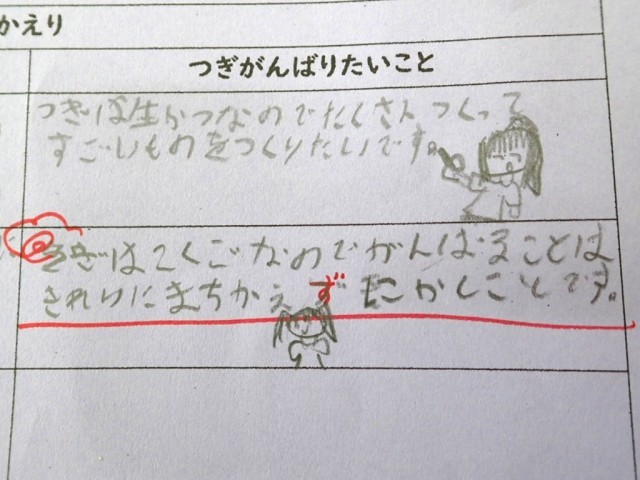 かえり
つぎがんばりたいこと
つぎは生かつなのでたくさんつくって
すごいものをつくりたいです。
つぎはこくごなのでがんばることは
きれいにまちがえずにかくことです。